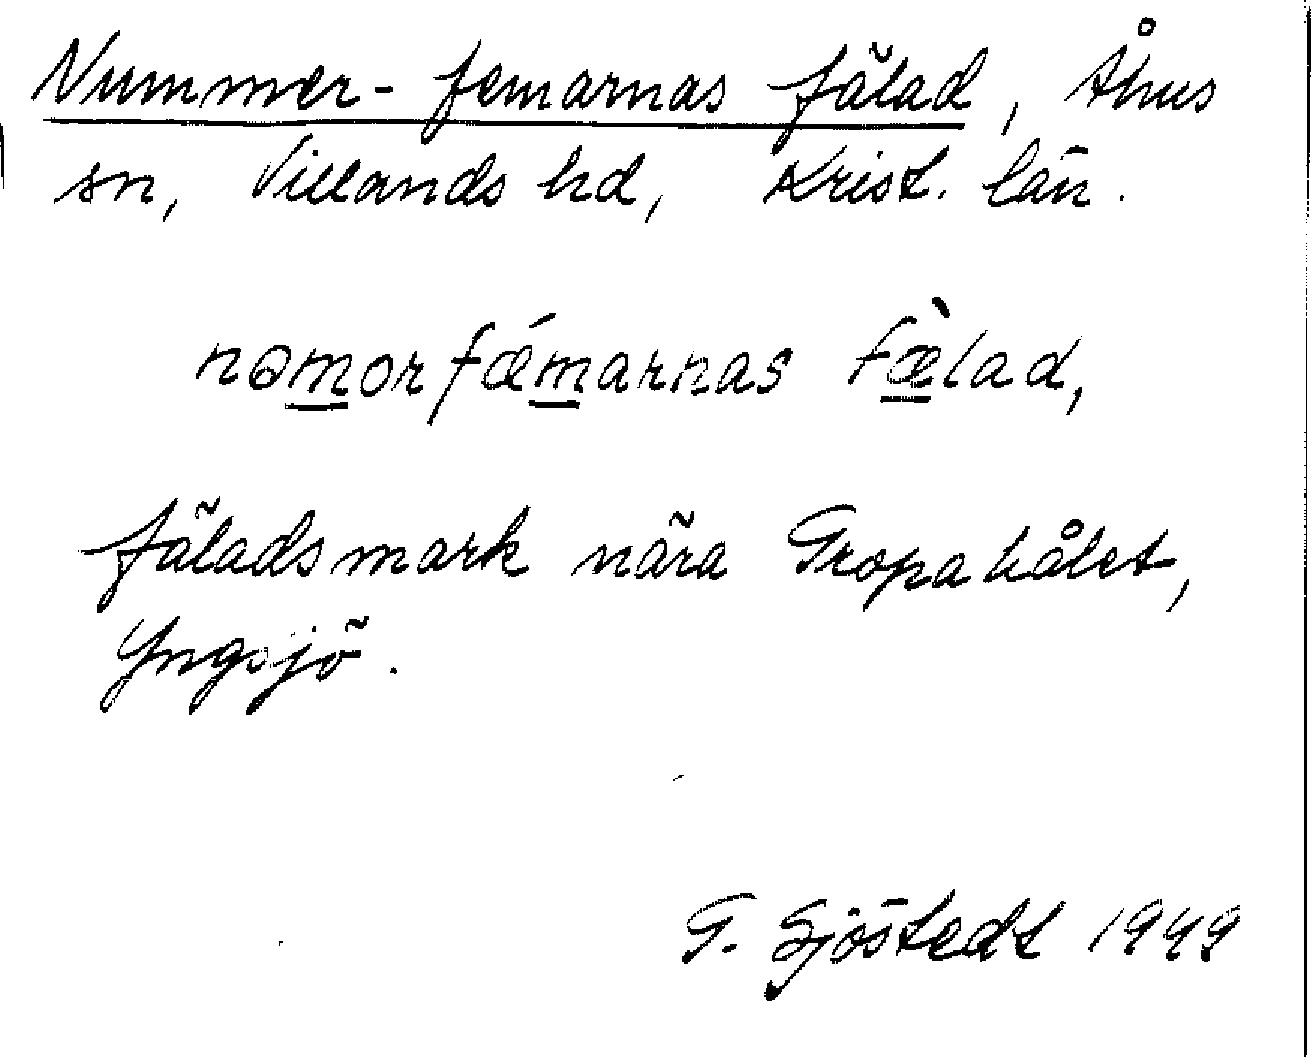 Nummer-femarnas fälad, Åhus
sn, Villands hd, Krist. län.
nəmorfǽmarnas fæ̀lad,
fäladsmark nära Gropahålet,
Yngsjö.
G. Sjöstedt 1949